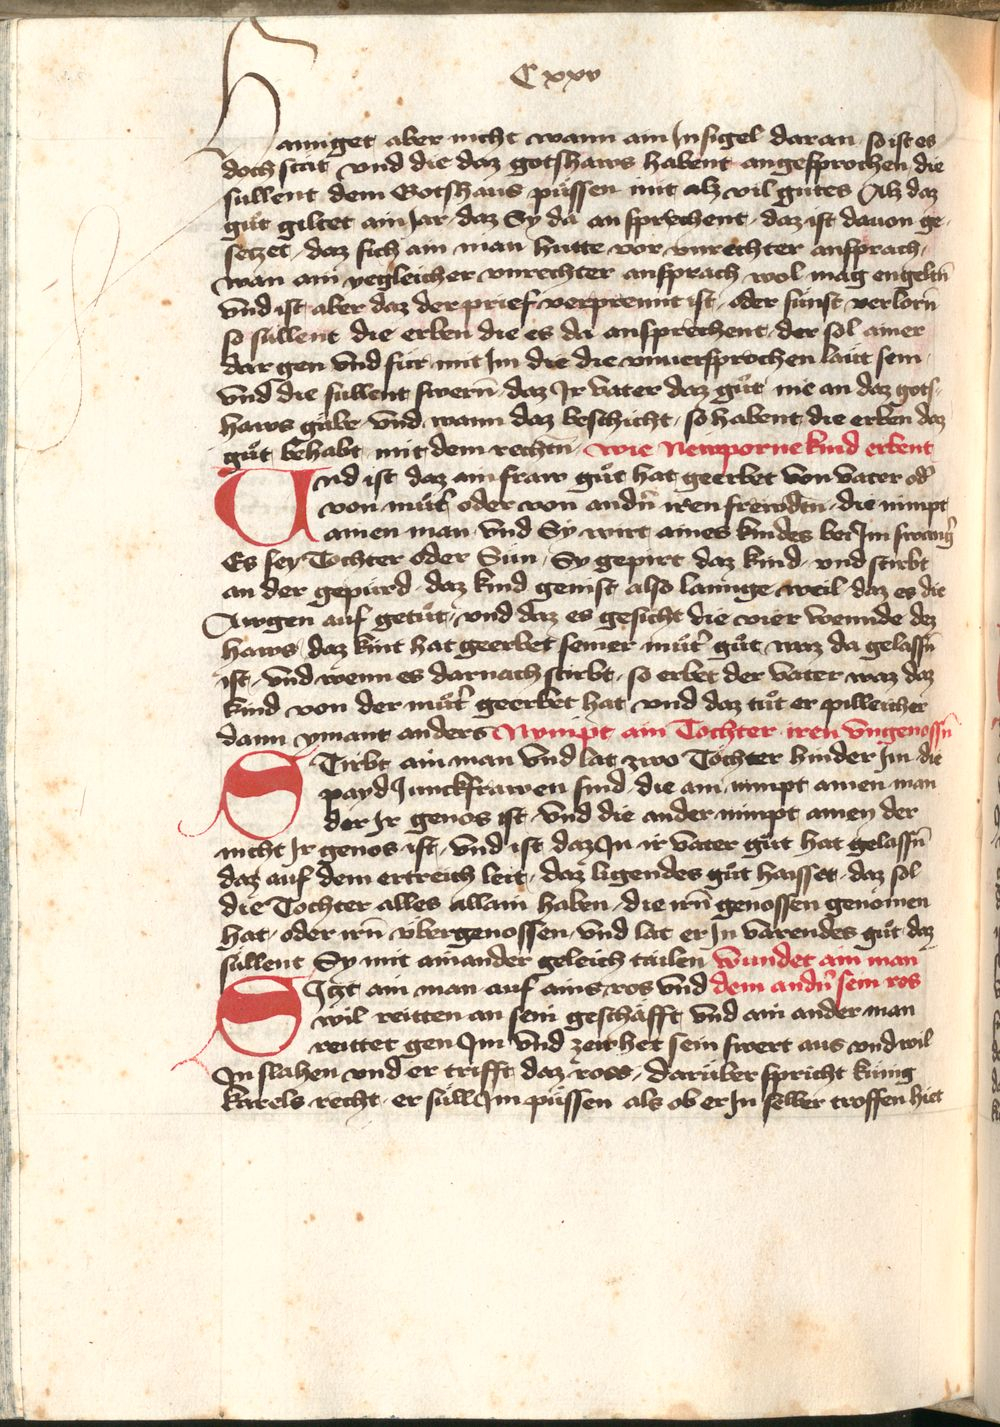 C xxv
Hannget aber nicht wann ain Insigel daran so ist es
doch stat vnd die daz gotshaws habent angesprochen die
sullent dem Gotshaus püssen mit alz vil gutes Alz daz
gůt giltet ain Jar daz Sy da an sprechent daz ist dauon ge-
setzet daz sich ain man hutte vor vnrechter ansprach
wan ain yegleicher vnrechter ansprach wol mag engeltn̄
Vnd ist aber daz der prief verprennt ist oder sünst verlorn̄
so süllent die erben die es da ansprechent der sol ainer
dar gen vnd für mit Im die die vnuersprochen läut sein
Vnd die süllent swern̄ daz Ir vater daz gůt nie an daz gots-
haws gäbe Vnd wann daz beschicht so habent die erben daz
gůt behabt mit dem rechtn̄ wie Newporne kind erbent
Vnd ist daz ain fraw gůt hat geerbet von vater od̄
von můt̄ oder von andn̄ iren frewdtn die nimpt
ainen man vnd Sy wirt aines kindes bei Im swanḡ
Es sey Tochter oder Sun Sy gepirt daz kind vnd stirbt
an der gepurd daz kind genist also lannge weil daz es die
Awgen auf getůt vnd daz es gesicht die vier wennde dez
haws daz kint hat geerbet seiner můt̄ gůt waz da gelassn̄
ist Vnd wenn es darnach stirbt so erbet der vater waz daz
kind von der můt̄ geerbet hat vnd daz tůt er pilleicher
dann ymant anders Nympt ain Tochter iren vngenossn̄
STirbt ain man vnd lat zwo Tochter hinder Im die
payd Junckfrawen sind die ain nimpt ainen man
der Ir genos ist Vnd die ander nimpt ainen der
nicht Ir genos ist Vnd ist daz In ir vater gůt hat gelassn̄
daz auf dem ertreich leit daz ligendes gůt haisset daz sol
die Tochter alles allain haben die irn̄ genossen genomen
hat oder irn̄ vbergenossen Vnd lat er In varendes gůt daz
süllent Sy mit ainander geleich tailen wundet ain man
SItzt ain man auf ains ros vnd dem andn̄ sein ros
wil reitten an sein geschäfft vnd ain ander man
reittet gen Im vnd zeuhet sein swert aus vnd wil
In slahen vnd er trifft daz ross darüber spricht künig
karels recht er süll Im püssen als ob er In selber troffen hiet